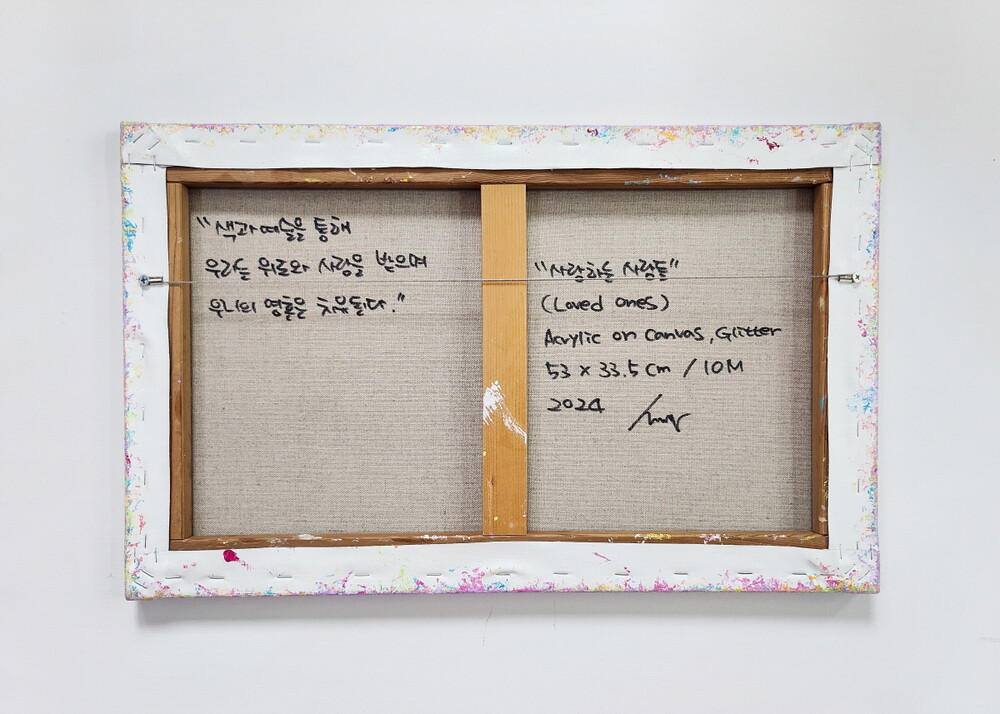 "색과 예술을 통해
우리는 위로와 사랑을 받으며
우리의 영혼은 치유된다."
"사랑하는 사람들"
(Loved ones)
Acrylic on Canvas, Glitter
53 x 33.5 cm / 10M
2024